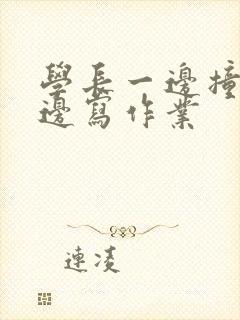 學長一邊撞
邊寫作業
連凌